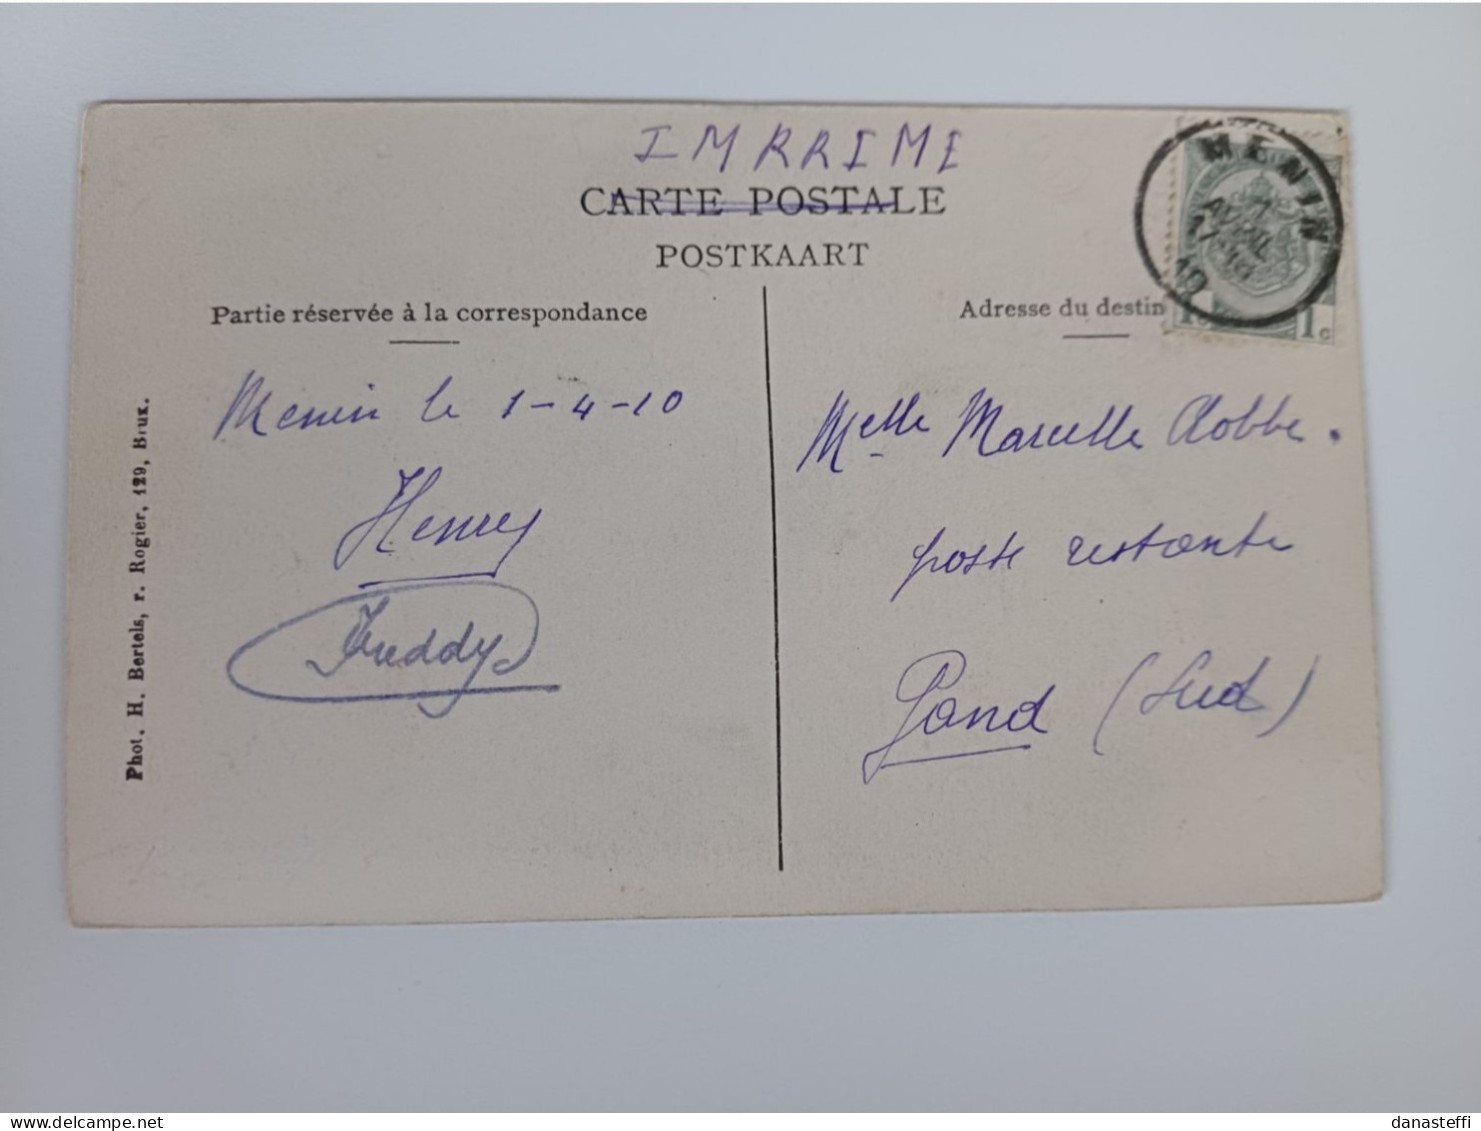 IMPRIME
CARTE POSTALE
POSTKAART
Partie réservée à la correspondance
Adresse du destin
MENIN
AVRIL
10
1c
Menin le 1-4-10
Henry
Freddy
Melle Marcelle Clobbe.
poste restante
Gand (Sud)
Phot. H. Bertels, r. Rogier, 129, Brux.
danasteffi